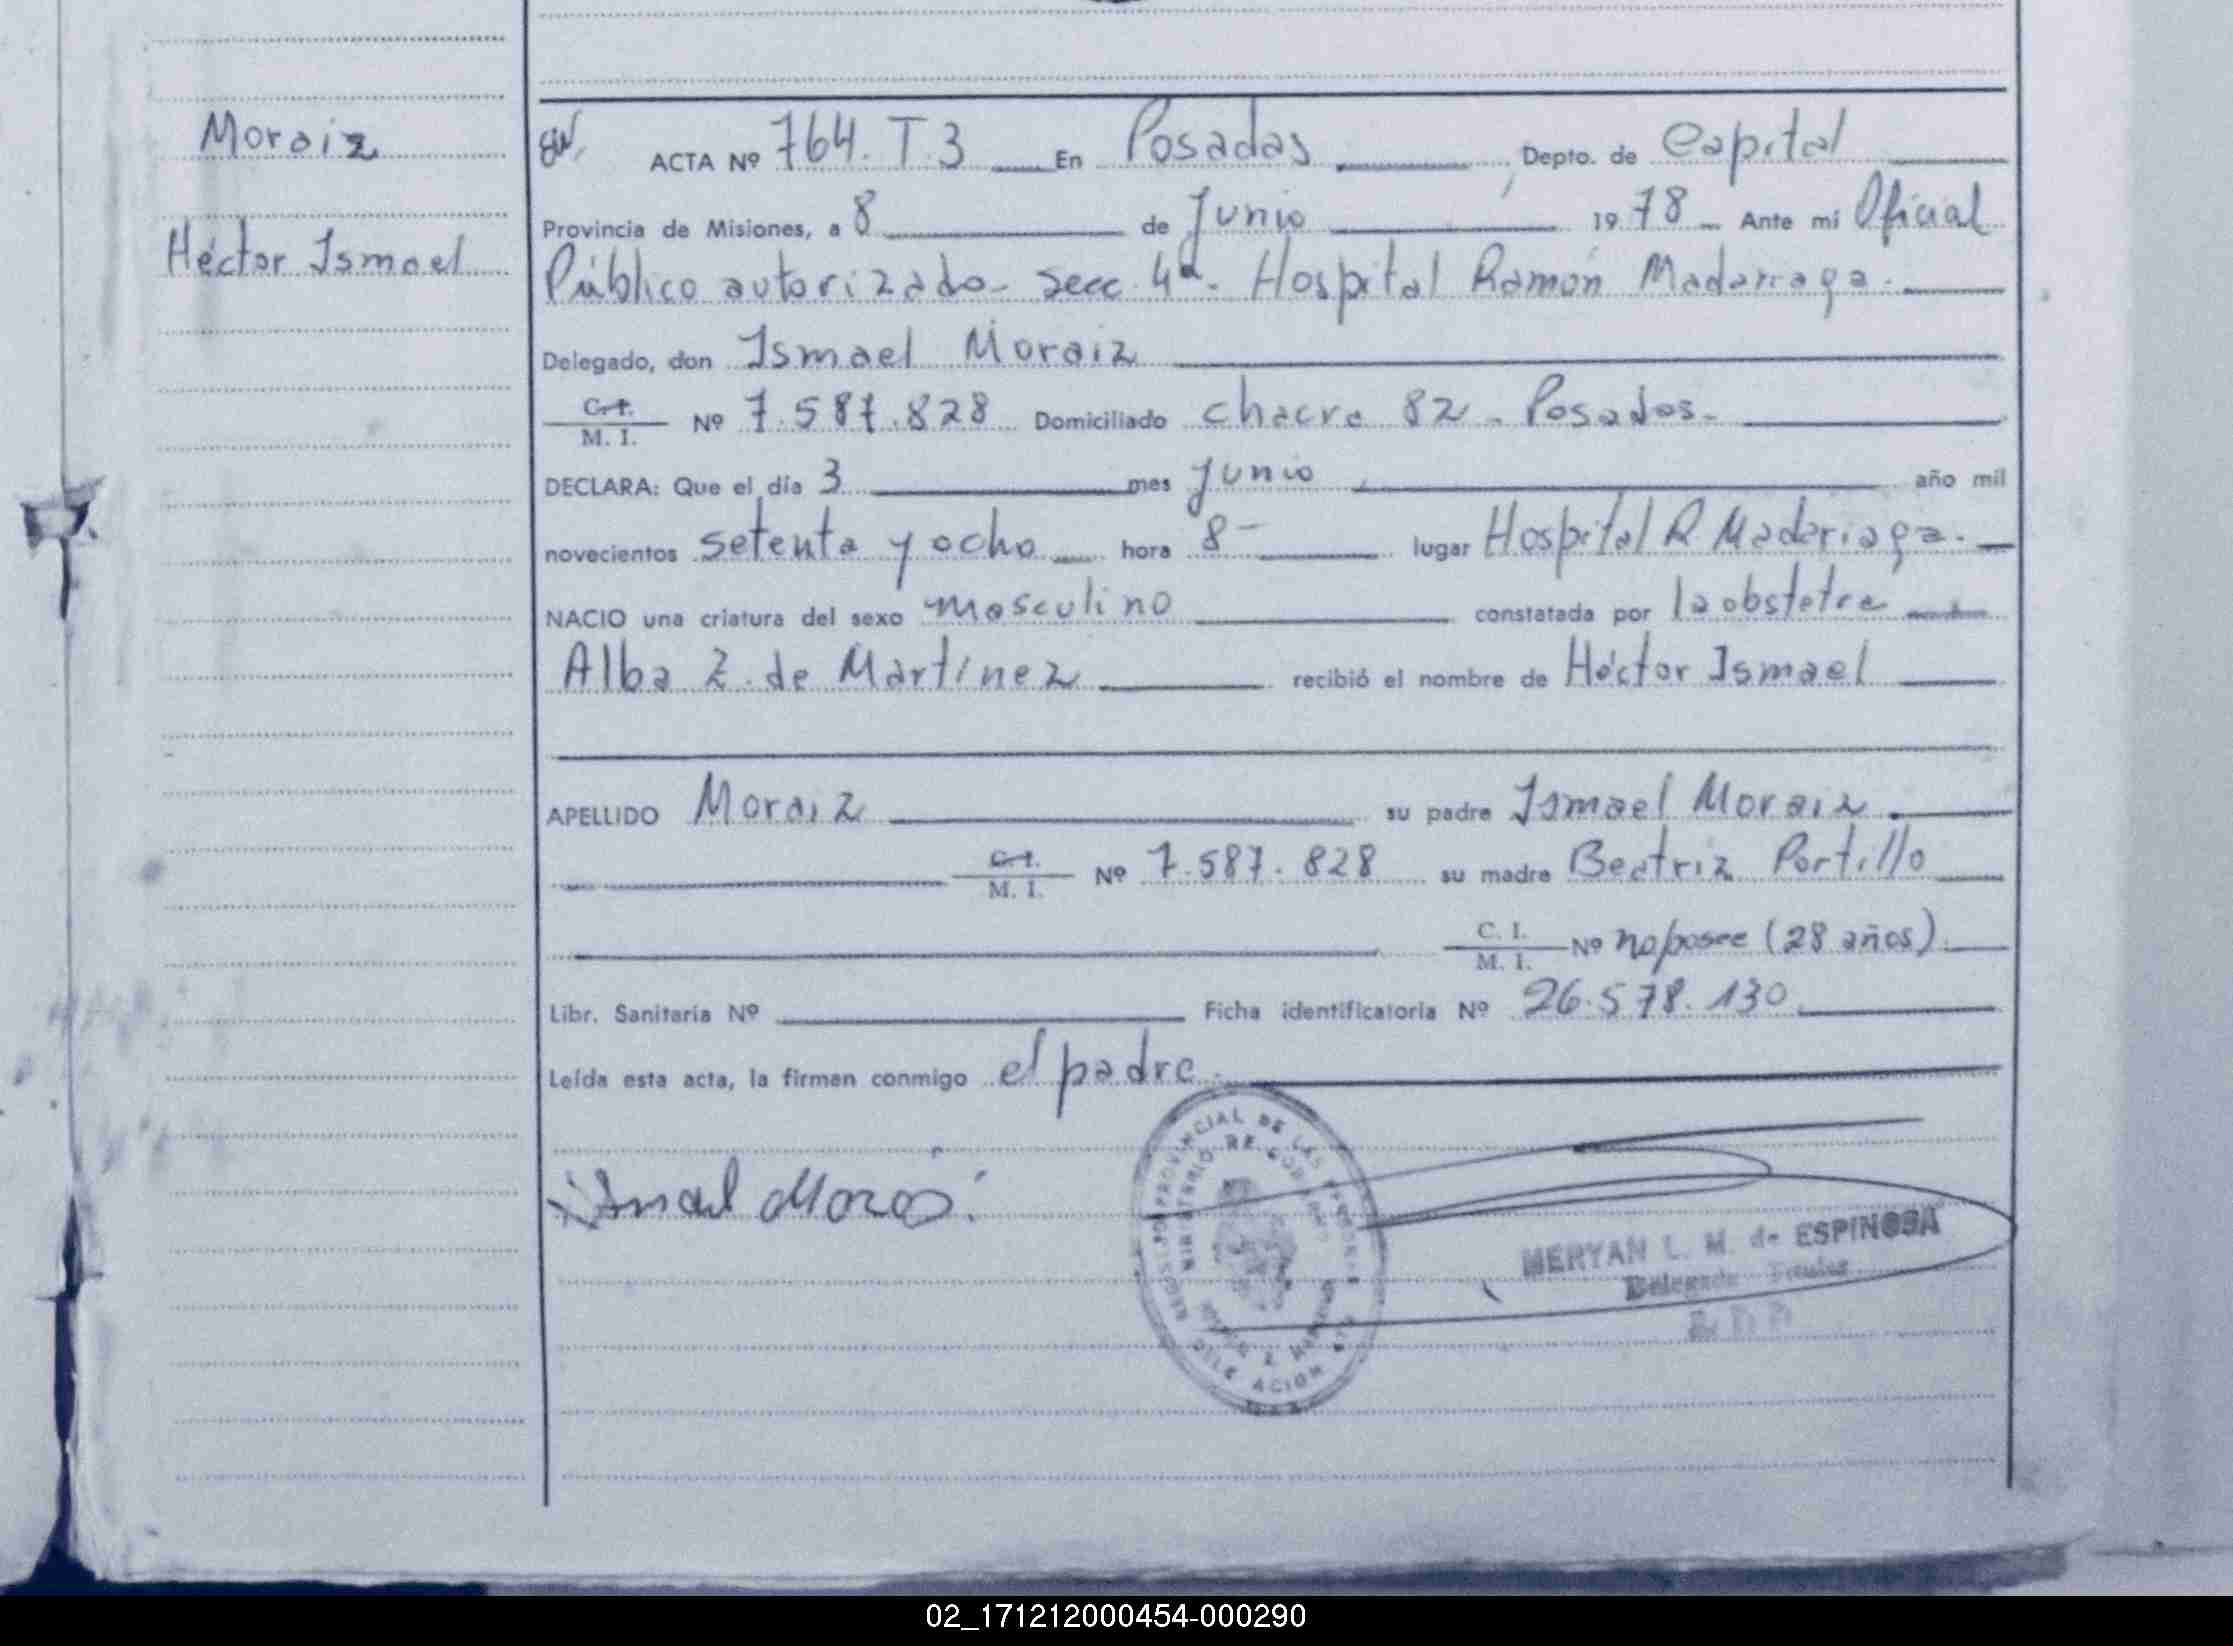 Moraiz
Héctor Ismael
ACTA Nº 764. T. 3 En Posadas Depto. de Capital
Provincia de Misiones, a 8 de Junio 1978 Ante mi Oficial
Público autorizado - Secc. 4ª. Hospital Ramón Madarriaga.
Delegado, don Ismael Moraiz
C. I. / M. I. Nº 7.587.828 Domiciliado chacra 82 - Posadas -
DECLARA: Que el día 3 mes Junio año mil
novecientos setenta y ocho hora 8 - lugar Hospital R Madariaga.
NACIO una criatura del sexo masculino constatada por la obstetra
Alba Z. de Martínez recibió el nombre de Héctor Ismael
APELLIDO Moraiz su padre Ismael Moraiz
C. I. / M. I. Nº 7.587.828 su madre Beatriz Portillo
C. I. / M. I. Nº no posee (28 años)
Libr. Sanitaria Nº Ficha identificatoria Nº 26.578.130
Leída esta acta, la firman conmigo el padre.
REGISTRO PROVINCIAL DE LAS PERSONAS
MERYAN L. M. de ESPINOSA
Delegada Titular
02_171212000454-000290